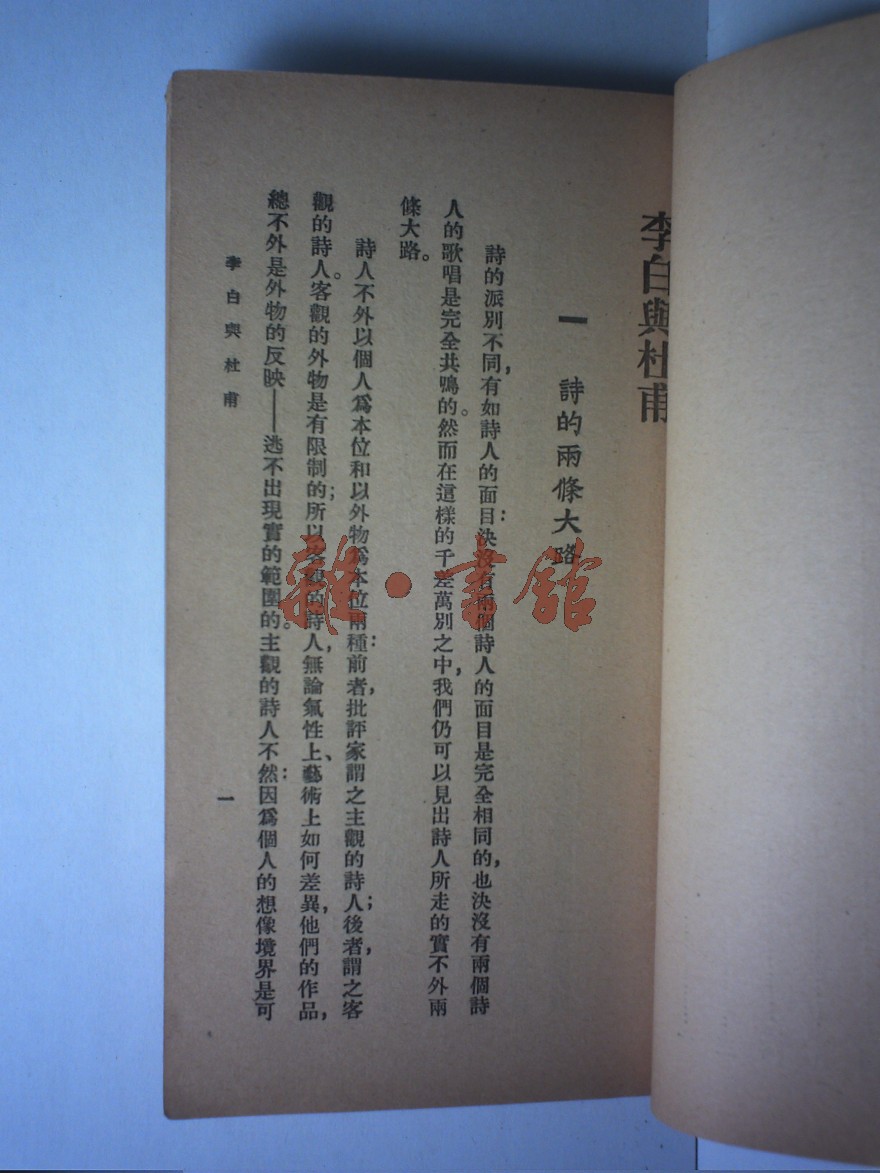 李白與杜甫
一 詩的兩條大路
詩的派別不同,有如詩人的面目:決沒有兩個詩人的面目是完全相同的,也決沒有兩個詩
人的歌唱是完全共鳴的。然而在這樣的千差萬別之中,我們仍可以見出詩人所走的實不外兩
條大路。
詩人不外以個人爲本位和以外物爲本位兩種:前者,批評家謂之主觀的詩人;後者,謂之客
觀的詩人。客觀的外物是有限制的;所以客觀的詩人,無論氣性上、藝術上如何差異,他們的作品,
總不外是外物的反映——逃不出現實的範圍的。主觀的詩人不然:因爲個人的想像境界是可
李白與杜甫
一
雜·書館